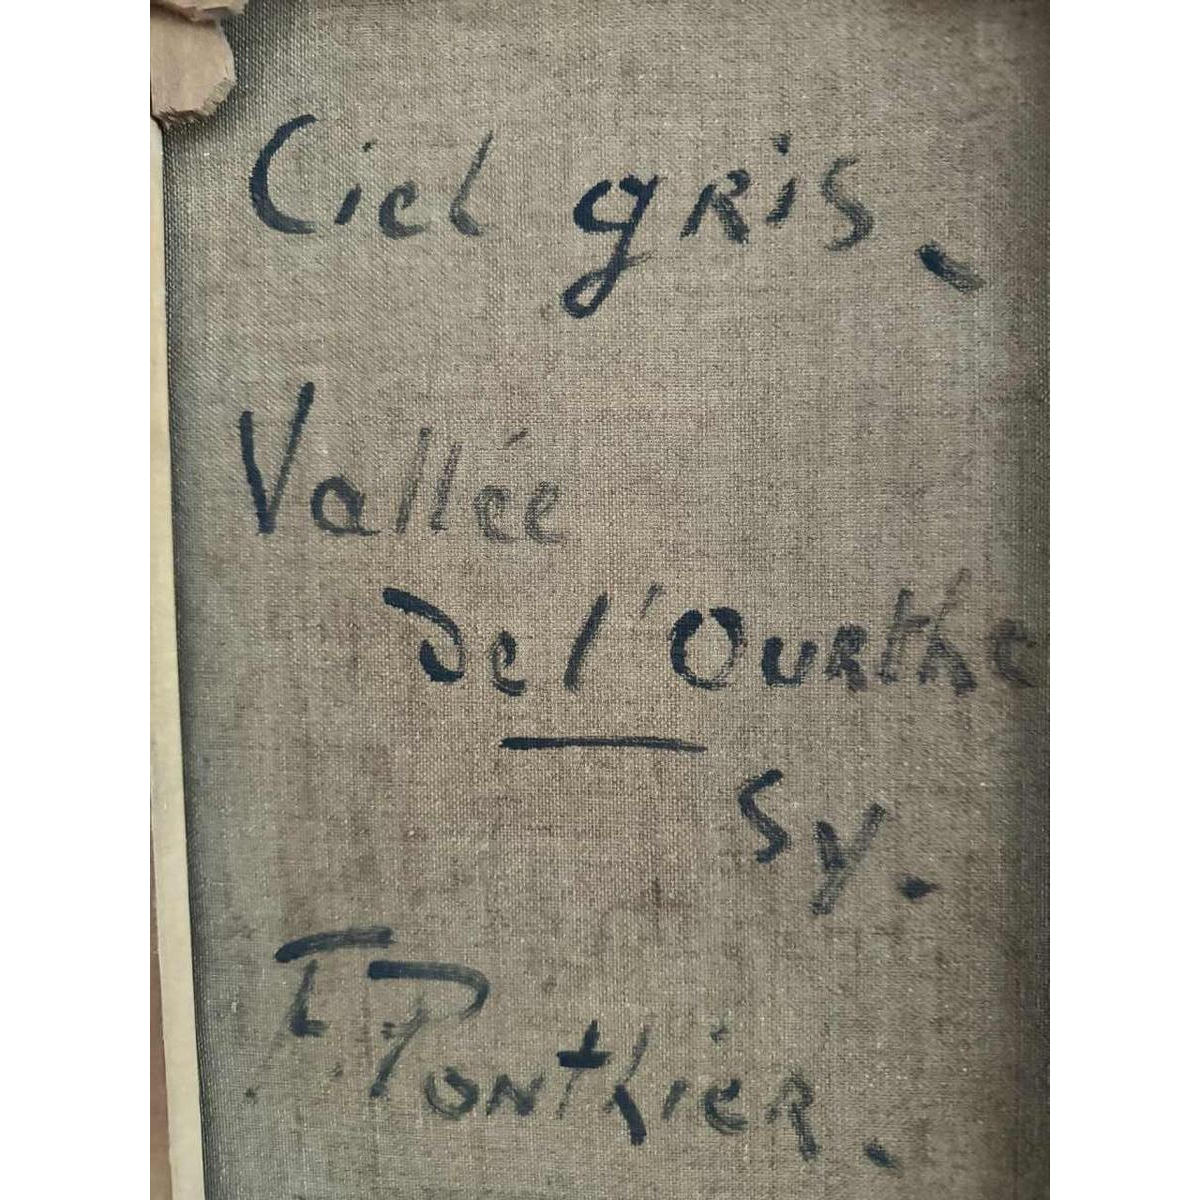 Ciel gris.
Vallée
De l'Ourthe
Sy.
F. Ponthier.